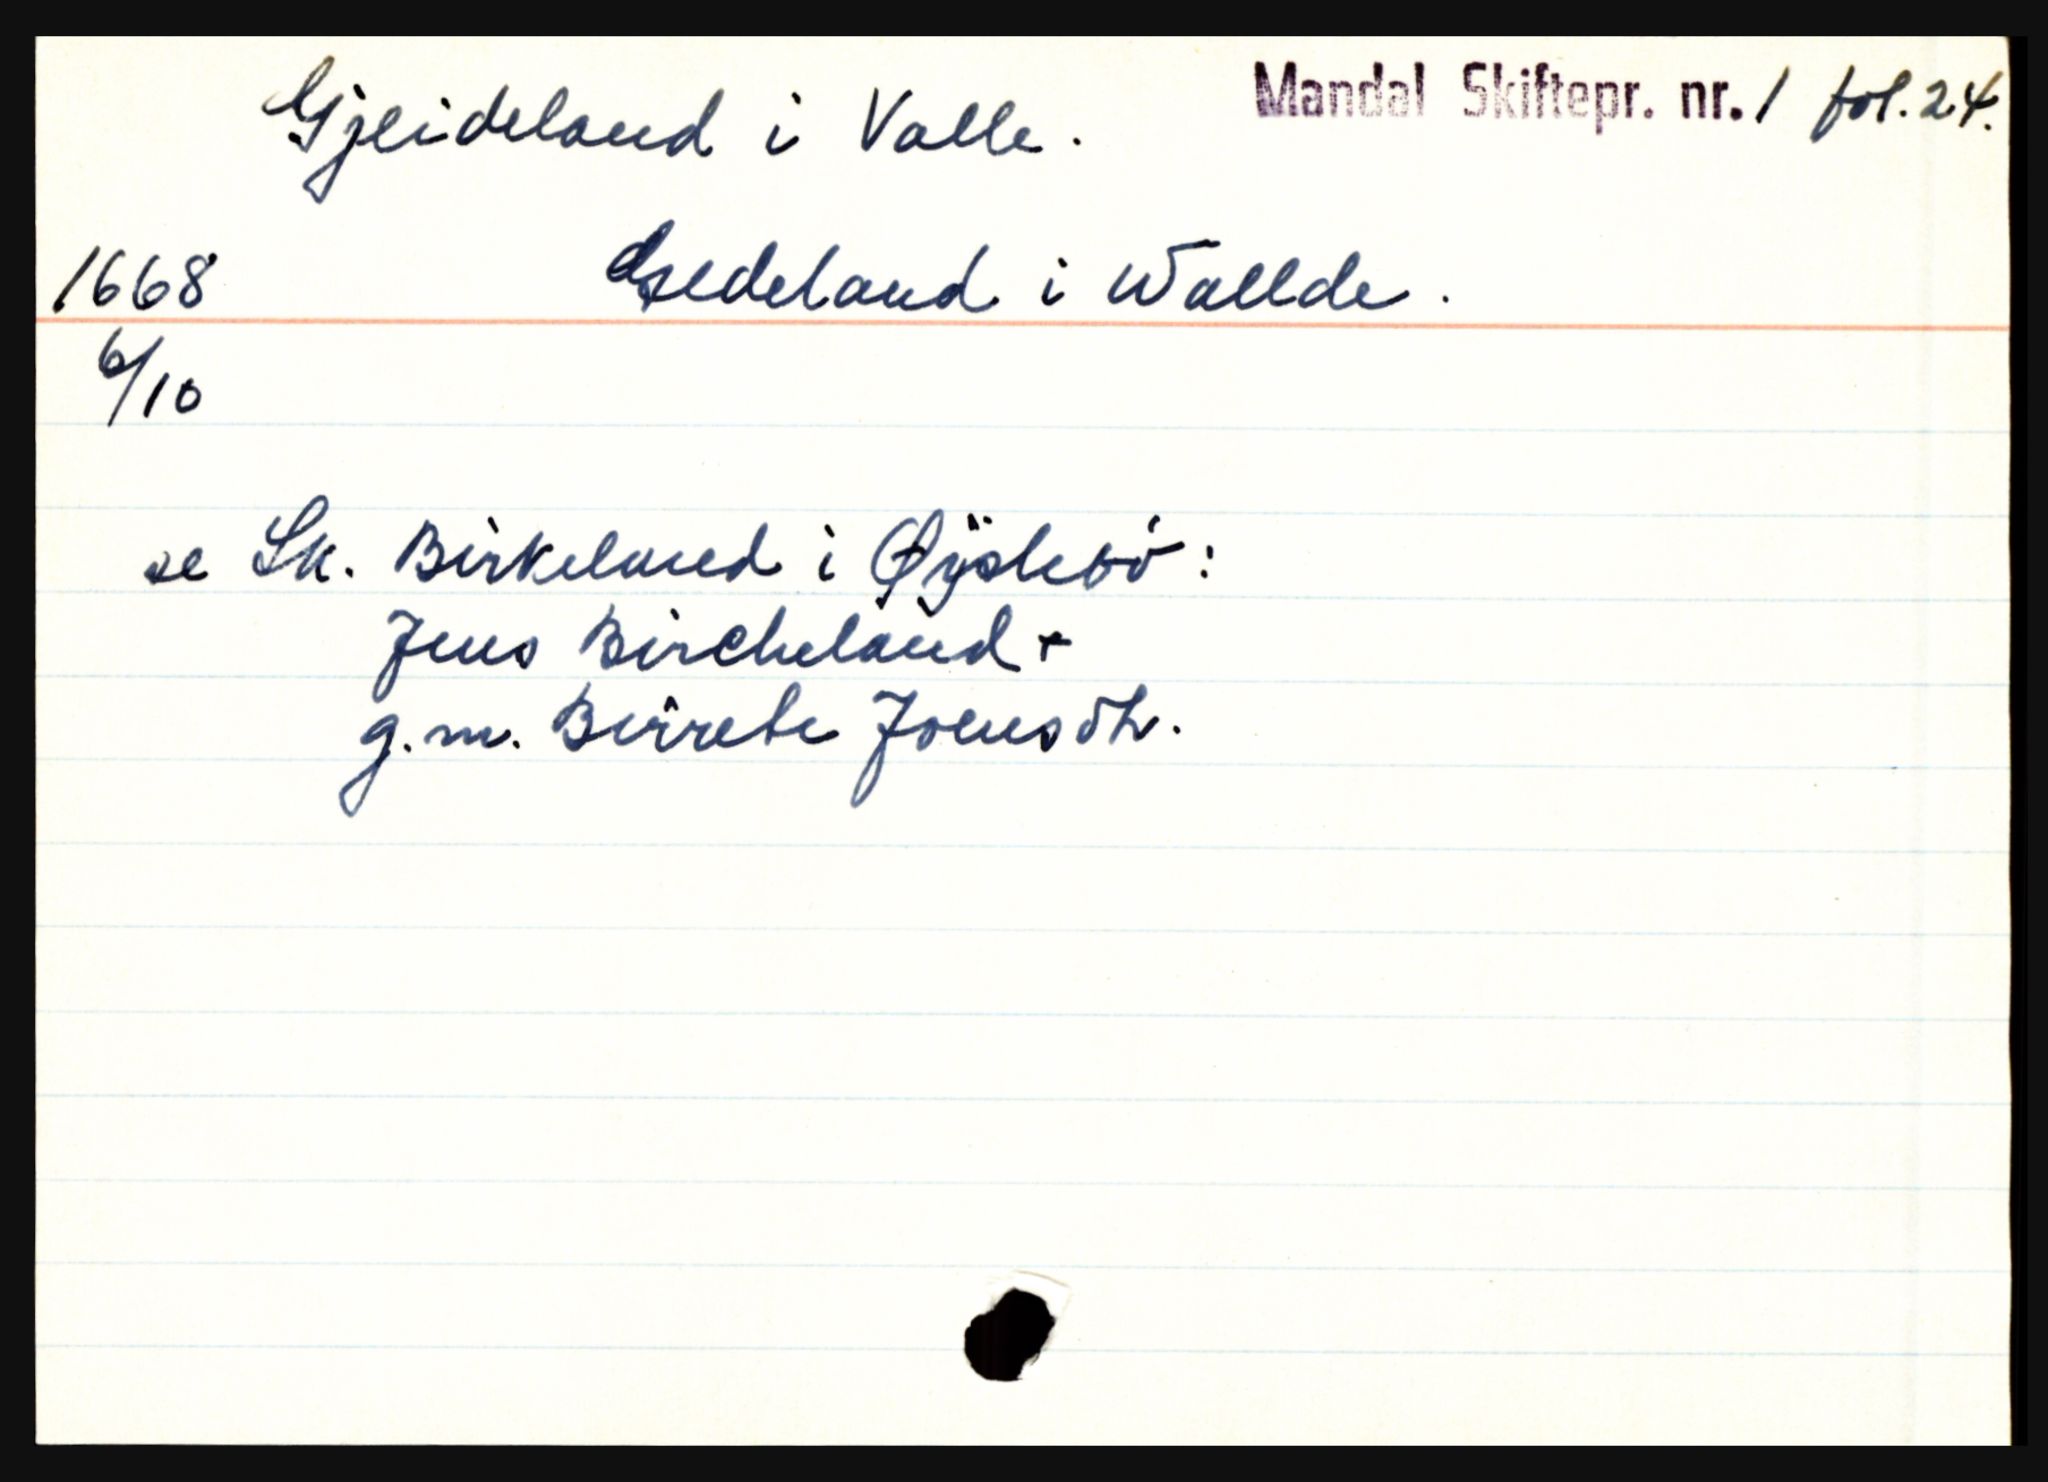 Gjeideland i Valle. Mandal Skiftepr. nr. 1 fol. 24.
1668 Gjedeland i Wallde.
6/10
se Sk. Birkeland i Øyslebö:
Jens Bircheland +
g.m. Birrete Joensdtr.